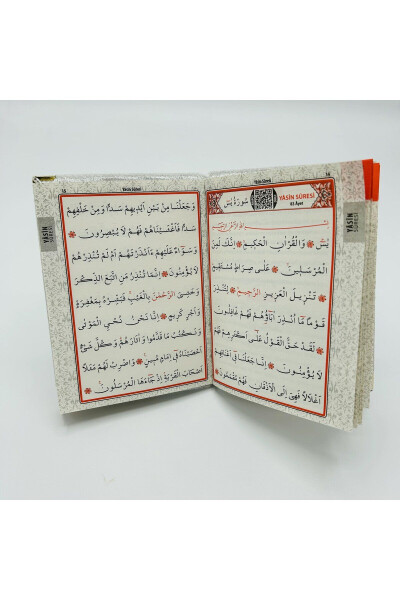 14
Yâsin Sûresi
سُورَةُ يٰسٓ
YÂSİN SÛRESİ
83 Âyet
YÂSİN
SÛRESİ
يٰسٓ وَالْقُرْاٰنِ الْحَكٖيمِ اِنَّكَ لَمِنَ
الْمُرْسَلٖينَ عَلٰى صِرَاطٍ مُسْتَقٖيمٍ
تَنْزٖيلَ الْعَزٖيزِ الرَّحٖيمِ لِتُنْذِرَ
قَوْمًا مَٓا اُنْذِرَ اٰبَٓاؤُ۬هُمْ فَهُمْ غَافِلُونَ
لَقَدْ حَقَّ الْقَوْلُ عَلٰٓى اَكْثَرِهِمْ فَهُمْ
لَا يُؤْمِنُونَ اِنَّا جَعَلْنَا فٖٓي اَعْنَاقِهِمْ
اَغْلَالًا فَهِيَ اِلَى الْاَذْقَانِ فَهُمْ مُقْمَحُونَ
Yâsin Sûresi
وَجَعَلْنَا مِنْ بَيْنِ اَيْدٖيهِمْ سَدًّا وَمِنْ خَلْفِهِمْ
سَدًّا فَاَغْشَيْنَاهُمْ فَهُمْ لَا يُبْصِرُونَ
وَسَوَٓاءٌ عَلَيْهِمْ ءَاَنْذَرْتَهُمْ اَمْ لَمْ تُنْذِرْهُمْ
لَا يُؤْمِنُونَ اِنَّمَا تُنْذِرُ مَنِ اتَّبَعَ الذِّكْرَ
وَخَشِيَ الرَّحْمٰنَ بِالْغَيْبِ فَبَشِّرْهُ بِمَغْفِرَةٍ
وَاَجْرٍ كَرٖيمٍ اِنَّا نَحْنُ نُحْيِ الْمَوْتٰى
وَنَكْتُبُ مَا قَدَّمُوا وَاٰثَارَهُمْ وَكُلَّ شَيْءٍ
اَحْصَيْنَاهُ فٖٓي اِمَامٍ مُبٖينٍ وَاضْرِبْ لَهُمْ مَثَلًا
اَصْحَابَ الْقَرْيَةِ اِذْ جَٓاءَهَا الْمُرْسَلُونَ